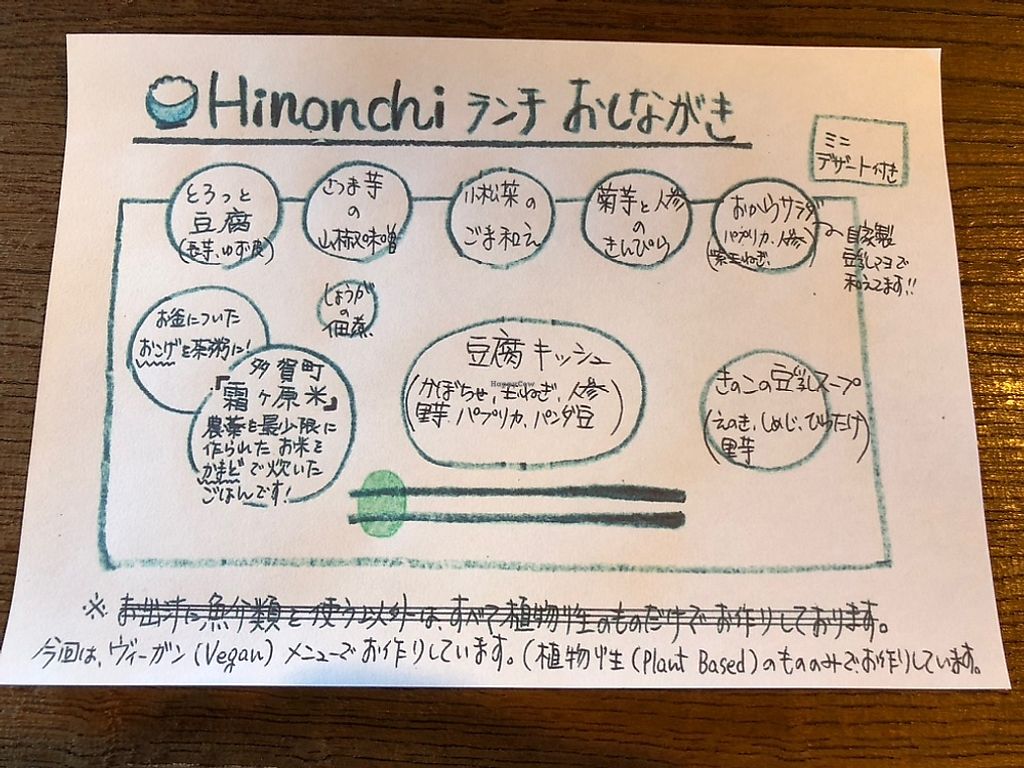 Hinonchi ランチ おしながき
ミニ
デザート付き
とろっと
豆腐
(長芋、ゆず皮)
さつま芋
の
山椒味噌
小松菜の
ごま和え
菊芋と人参
の
きんぴら
おからサラダ
パプリカ、人参
紫玉ねぎ、
自家製
豆乳マヨで
和えてます!!
お釜についた
おこげを茶粥に!
しょうが
の
佃煮
多賀町
『霜ヶ原米』
農薬を最少限に
作られたお米を
かまどで炊いた
ごはんです!
豆腐キッシュ
(かぼちゃ、玉ねぎ、人参
里芋、パプリカ、パンダ豆)
HappyCow
きのこの豆乳スープ
(えのき、しめじ、ひらたけ
里芋)
※ お出汁に魚介類を使う以外は、すべて植物性のものだけでお作りしております。
今回は、ヴィーガン(Vegan)メニューでお作りしています。(植物性(Plant Based)のもののみでお作りしています。